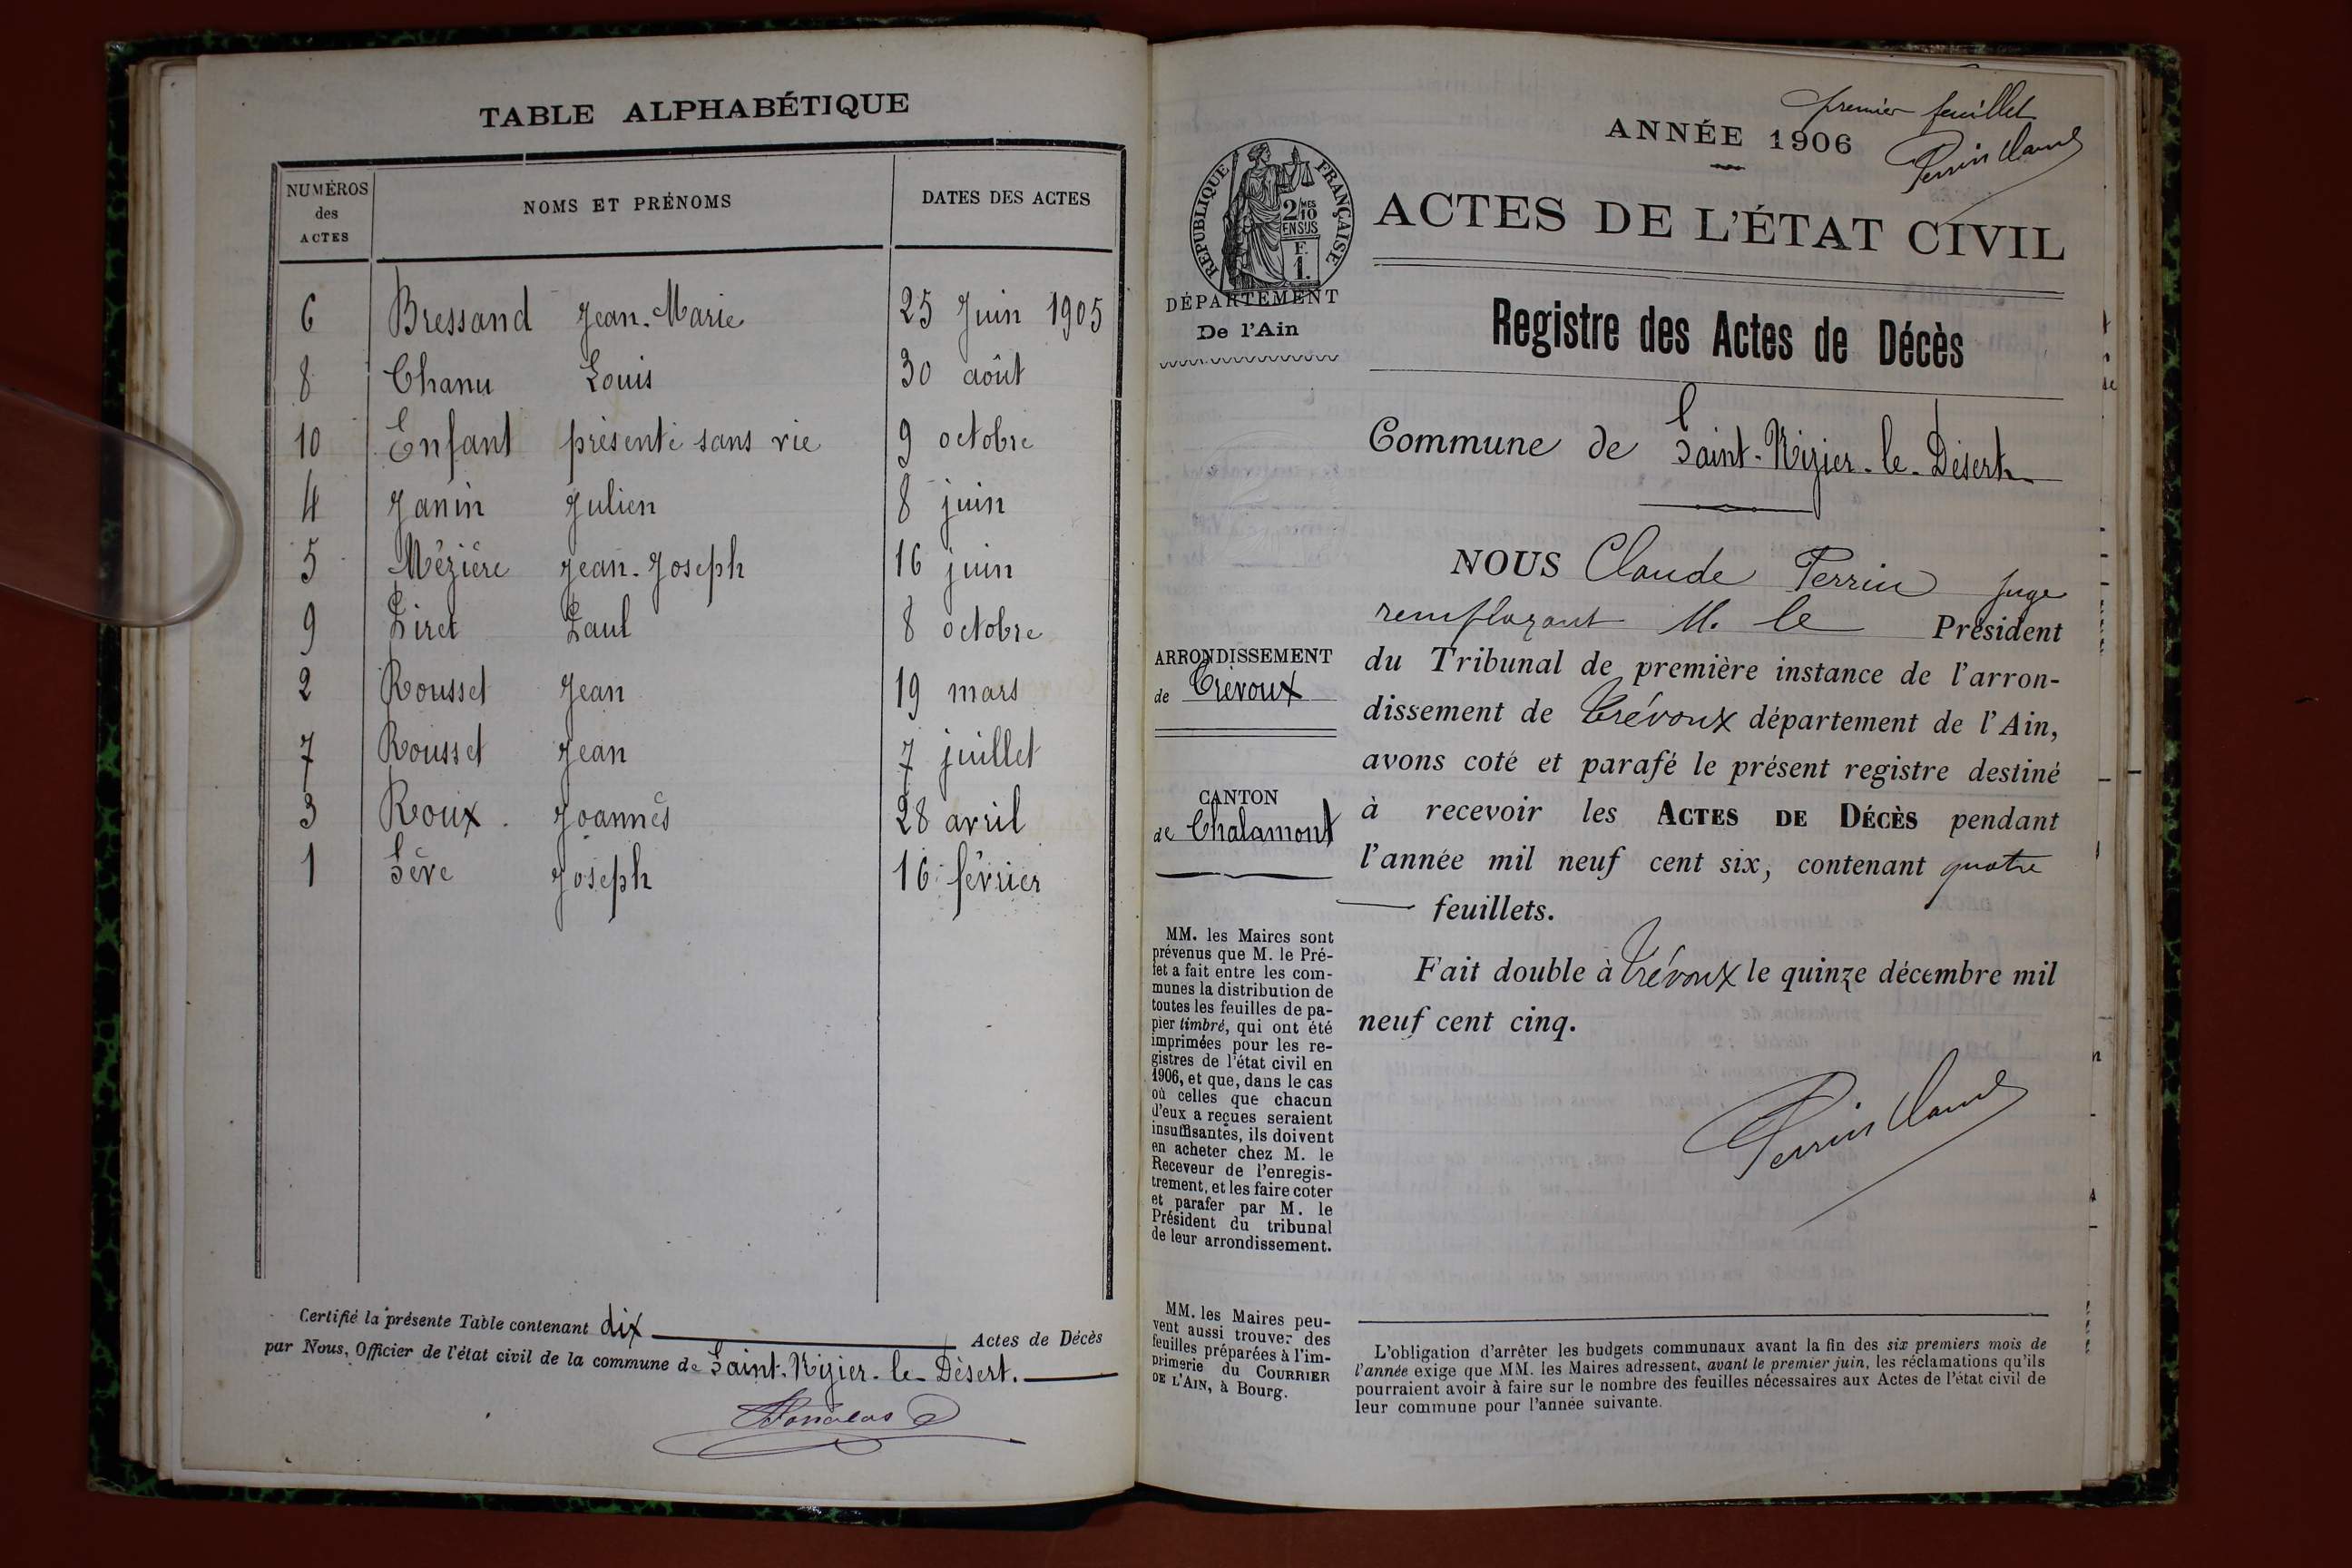 TABLE ALPHABÉTIQUE
NUMÉROS des ACTES NOMS ET PRÉNOMS DATES DES ACTES
6 Bressand Jean-Marie 25 Juin 1905
8 Chanu Louis 30 août
10 Enfant présenté sans vie 9 octobre
4 Janin Julien 8 juin
5 Mézière Jean-Joseph 16 juin
9 Piret Paul 8 octobre
2 Rousset Jean 19 mars
7 Rousset Jean 7 juillet
3 Roux Joannès 28 avril
1 Sève Joseph 16 février
Certifié la présente Table contenant dix Actes de Décès
par Nous, Officier de l'état civil de la commune de Saint-Nizier-le-Désert.
premier feuillet
Perrin Claude
ANNÉE 1906
RÉPUBLIQUE FRANÇAISE
2/10 MES
EN SUS
F.
1.
ACTES DE L'ÉTAT CIVIL
DÉPARTEMENT
De l'Ain
Registre des Actes de Décès
Commune de Saint-Nizier-le-Désert
NOUS Claude Perrin juge
remplaçant M. le Président
du Tribunal de première instance de l'arron-
dissement de Trévoux département de l'Ain,
avons coté et parafé le présent registre destiné
à recevoir les ACTES DE DÉCÈS pendant
l'année mil neuf cent six, contenant quatre
feuillets.
Fait double à Trévoux le quinze décembre mil
neuf cent cinq.
Perrin Claude
ARRONDISSEMENT
de Trévoux
CANTON
de Chalamont
MM. les Maires sont
prévenus que M. le Pré-
fet a fait entre les com-
munes la distribution de
toutes les feuilles de pa-
pier timbré, qui ont été
imprimées pour les re-
gistres de l'état civil en
1906, et que, dans le cas
où celles que chacun
d'eux a reçues seraient
insuffisantes, ils doivent
en acheter chez M. le
Receveur de l'enregis-
trement, et les faire coter
et parafer par M. le
Président du tribunal
de leur arrondissement.
MM. les Maires peu-
vent aussi trouver des
feuilles préparées à l'im-
primerie du COURRIER
DE L'AIN, à Bourg.
L'obligation d'arrêter les budgets communaux avant la fin des six premiers mois de
l'année exige que MM. les Maires adressent, avant le premier juin, les réclamations qu'ils
pourraient avoir à faire sur le nombre des feuilles nécessaires aux Actes de l'état civil de
leur commune pour l'année suivante.